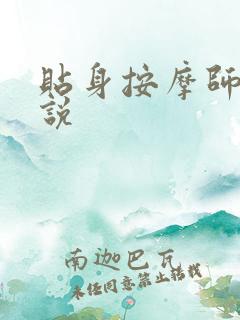 貼身按摩師
說
南迦巴瓦
未经同意禁止转载